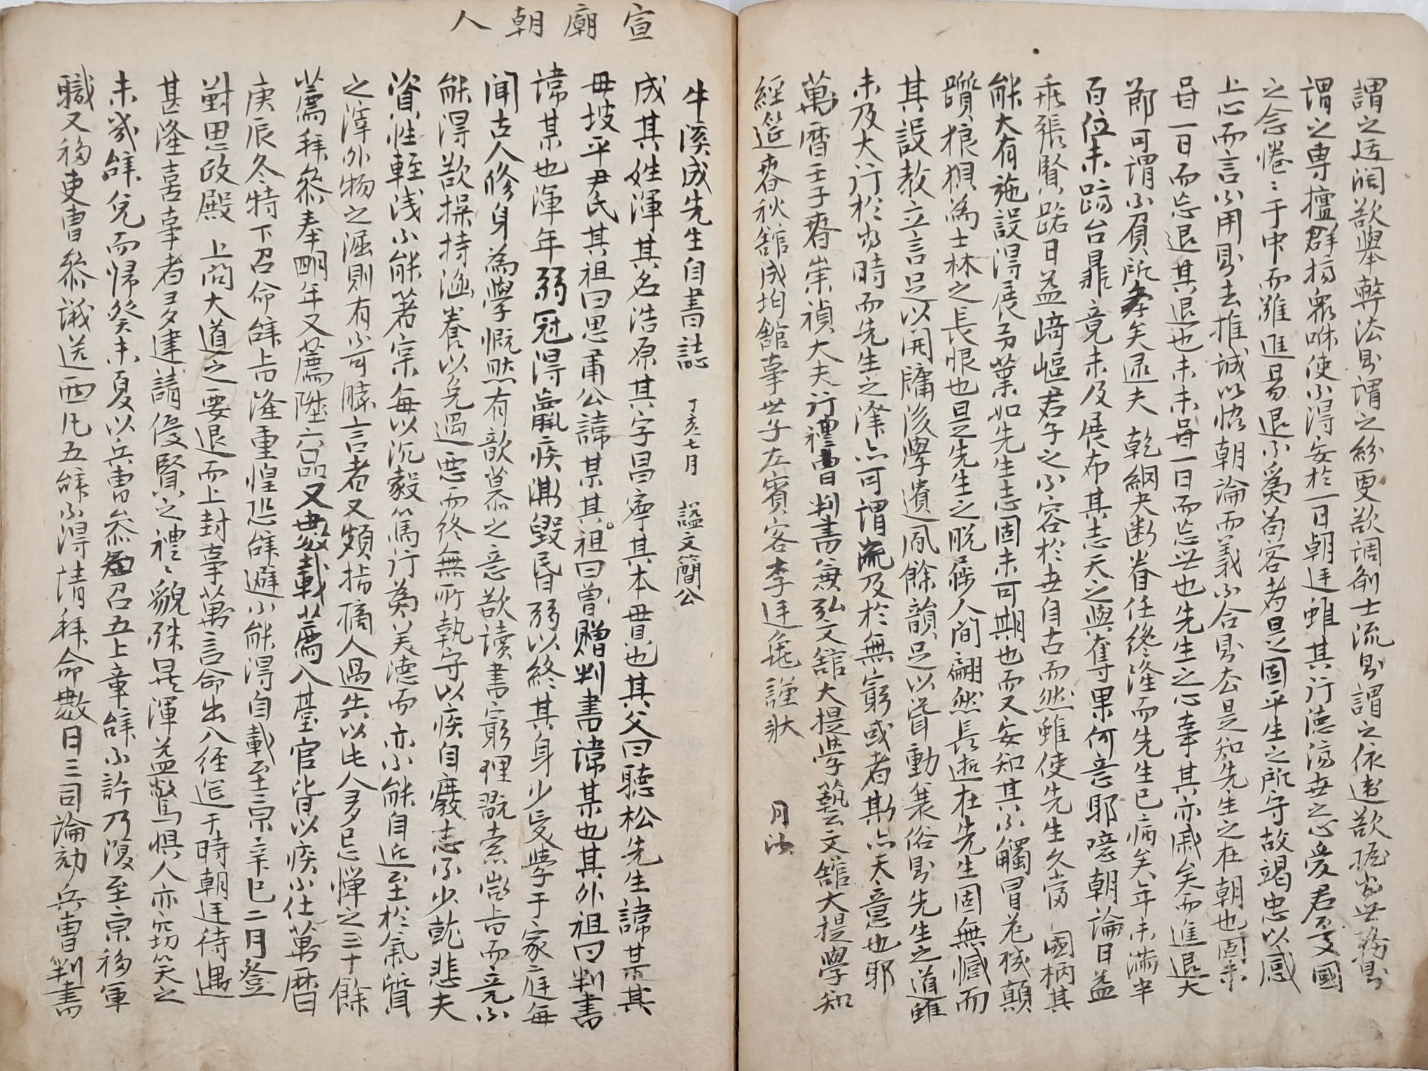 謂之迂闊欲擧弊法則謂之紛更欲調劑士流則謂之依違欲拯當世務則
謂之專擅群搆衆咻使不得安於一日朝廷雖其行德濟世之心愛君憂國
之念惓〻于中而難進易退不爲苟容者是固平生之所守故竭忠以感
上心而言不用則去推誠以恊朝論而義不合則去是知先生之在朝也固未
甞一日而忘退其退也未未甞一日而忘世也先生之心事其亦戚矣而進退大
節可謂不負所學矣逮夫 乾綱夬斷眷任終隆而先生已病矣年未滿半
百位未躋台鼎竟未及展布其志天之與奪果何意耶噫朝論日益
乖張賢路日益崎嶇君子之不容於世自古而然雖使先生久當 國柄其
能大有施設得展事業如先生志固未可期也而又安知其不觸冒危機顚
躓狼狽爲士林之長恨也是先生之脫屣人間翩然長逝在先生固無憾而
其設敎立言足以開牖後學遺風餘韻足以聳動衰俗則先生之道雖
未及大行於當時而先生之澤亦可謂流及於無窮或者斯亦天意也耶
萬曆壬子春崇禎大夫行禮曹判書兼弘文館大提學藝文館大提學知
經筵春秋館成均館事世子左賓客李廷龜謹狀 月沙
宣廟朝人
牛溪成先生自書誌 丁亥七月 諡文簡公
成其姓渾其名浩原其字昌寧其本貫也其父曰聽松先生諱某其
母坡平尹氏其祖曰思肅公諱某其祖曰曾贈判書諱某也其外祖曰判書
諱某也渾年弱冠得羸疾澌毁昏弱以終其身少受學于家庭每
聞古人修身爲學慨然有歆慕之意欲讀書窮理翫索微旨而竟不
能得欲操持涵養以免過惡而終無所執守以疾自廢志不少就悲夫
資性輕淺不能著實每以沉毅篤行爲美德而亦不能自近至於氣質
之滓外物之溷則有不可勝言者又頗指摘人過失以此人多忌憚之三十餘
薦拜叅奉明年又薦陞六品又數載薦入臺官皆以疾不仕萬曆
庚辰冬特下召命辭旨隆重惶恐辭避不能得自載至京辛巳二月登
對思政殿 上問大道之要退而上封事萬言命出入經筵于時朝廷待遇
甚隆喜事者多建請優賢之禮〻貌殊異渾益驚懼人亦竊笑之
未幾辭免而歸癸未夏以兵曹叅知召五上章辭不許乃復至京移軍
職又移吏曹叅議送西凡五辭不得請拜命數日三司論劾兵曹判書